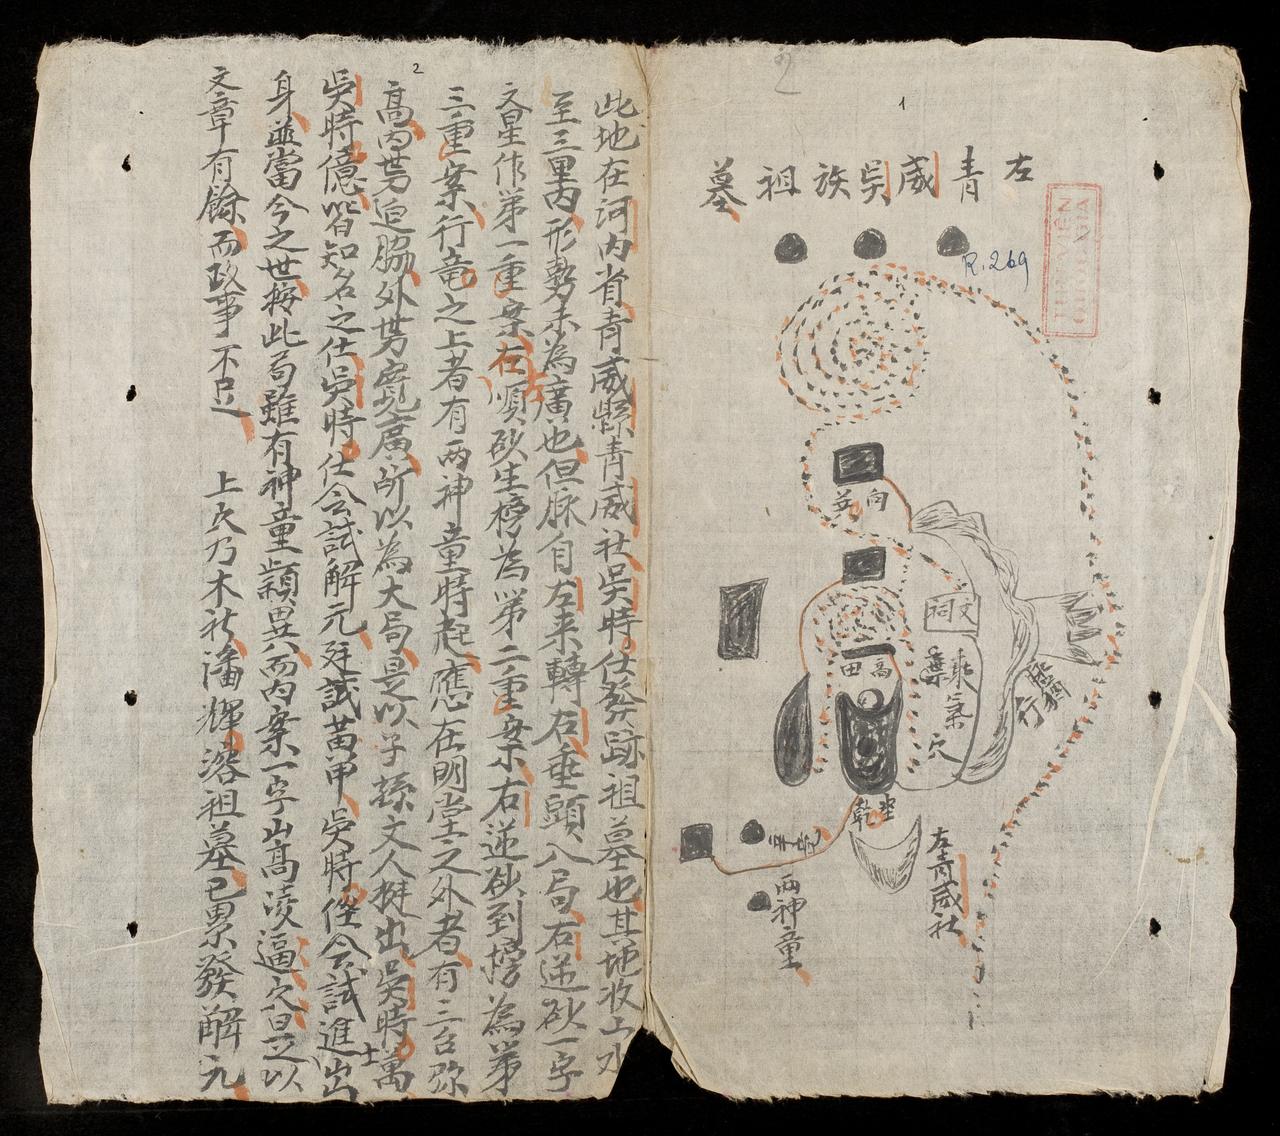 左青威吳族祖墓
1
R.269
向
文祠
高田
乘氣穴
坐乾
左青威社
兩神童
2
此地在河內省青威縣青威社吳時仕發跡祖墓也其地收山水
至三里內形勢未為廣也但脉自左來轉右垂頭入局右逆砂一字
文星作第一重案右順砂生榜為第二重案右逆砂到榜為第
三重案行竜之上者有兩神童時起應在明堂之外者有三台弥
高內势迫脇外势寬廣所以為大局是以子孫文人挺出吳時萬
吳時億皆知名之仕吳時仕会試解元廷試黃甲吳時俇会試進士出
身並當今之世按此局雖有神童穎異而內案一字山高凌逼穴星以
文章有餘而政事不足 上久乃木社潘輝溶祖墓已累發解元